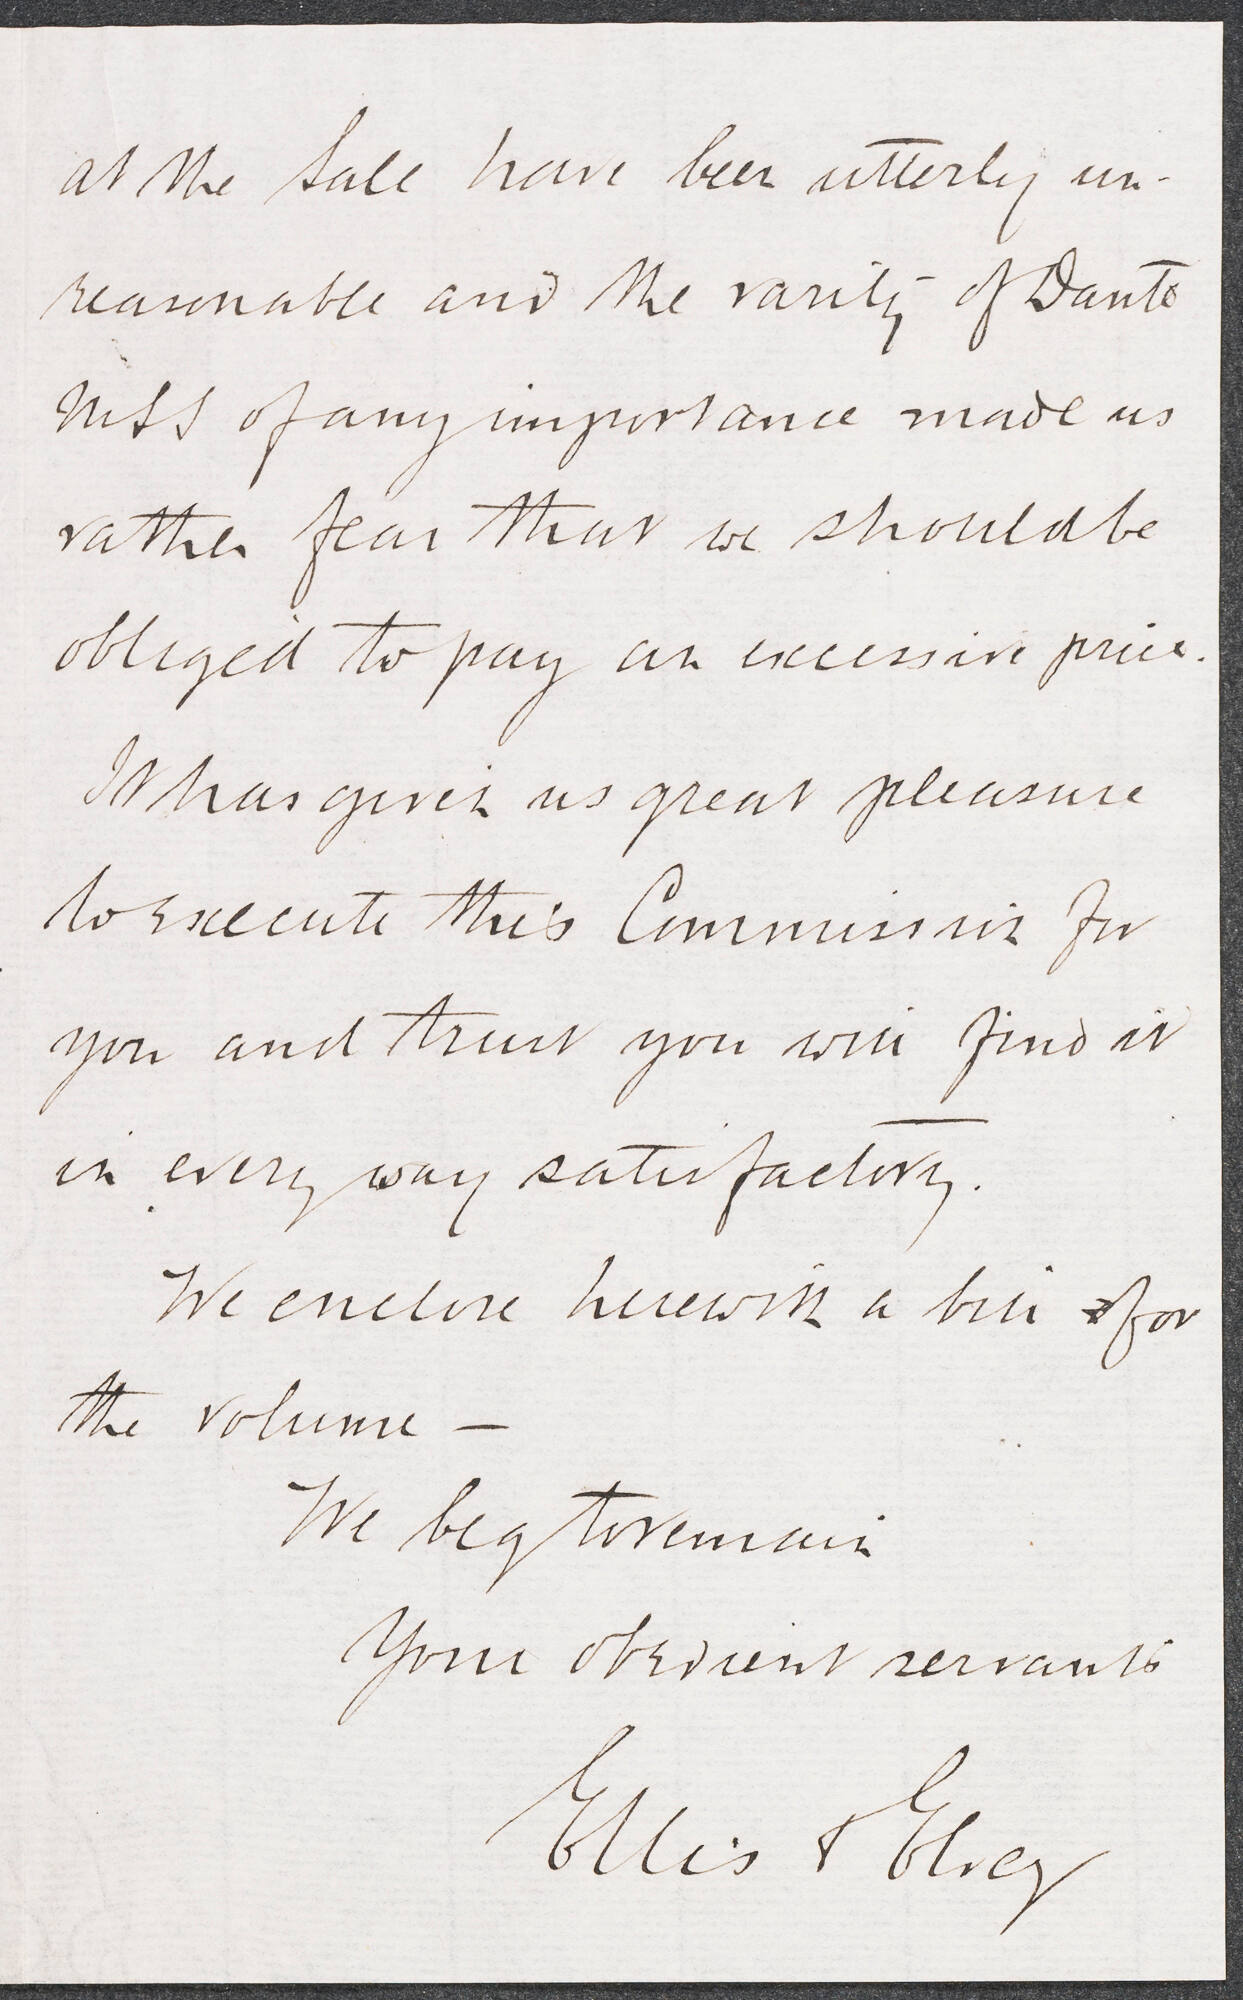 at the Sale have been utterly un-
reasonable and the rarity of Dante
MSS of any importance made us
rather fear that we should be
obliged to pay an excessive price.
It has given us great pleasure
to execute this Commission for
you and trust you will find it
in every way satisfactory.
We enclose herewith a bill for
the volume —
We beg to remain
Your obedient servants
Ellis & Elvey